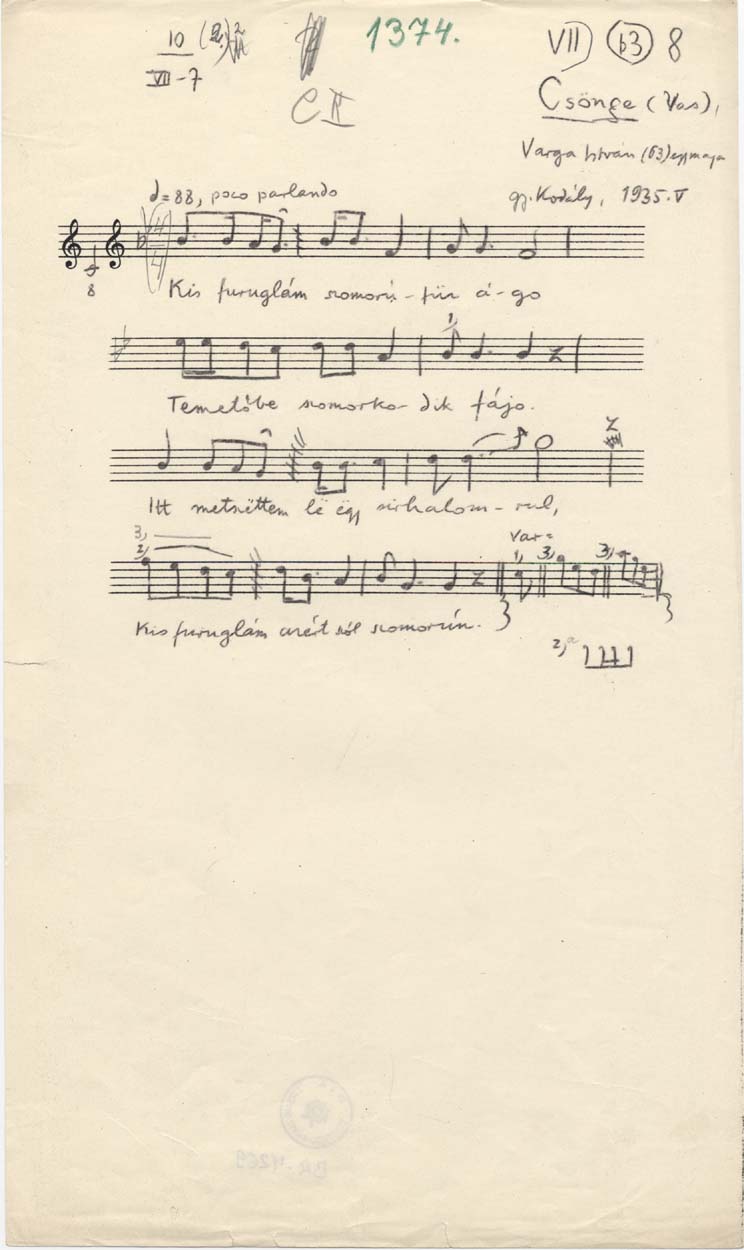 10
VII-7
1374.
VII) (b3) 8
C II
Csönge (Vas),
Varga István (63)
gy. Kodály, 1935. V
= 88, poco parlando
8
Kis furuglám szomorú-fűz á-go
1,
Temetőbe szomorko-dik fájo.
Itt metszëttem lë ëgy sirhalom-rul,
3,
2,
Var=
1, 3, 3,
Kis furuglám azért szól szomorún.
2,